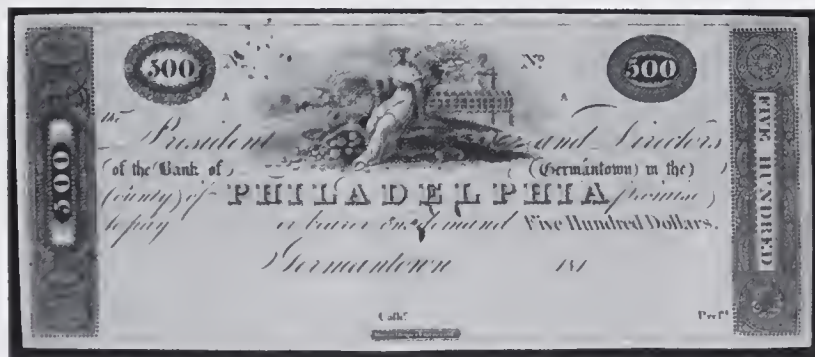 500 No. No. 500
A A
The President and Directors
of the Bank of (Germantown) in the
County of PHILADELPHIA promise
to pay or bearer on demand Five Hundred Dollars.
Germantown 181
Cashr. Presdt.
500
FIVE HUNDRED